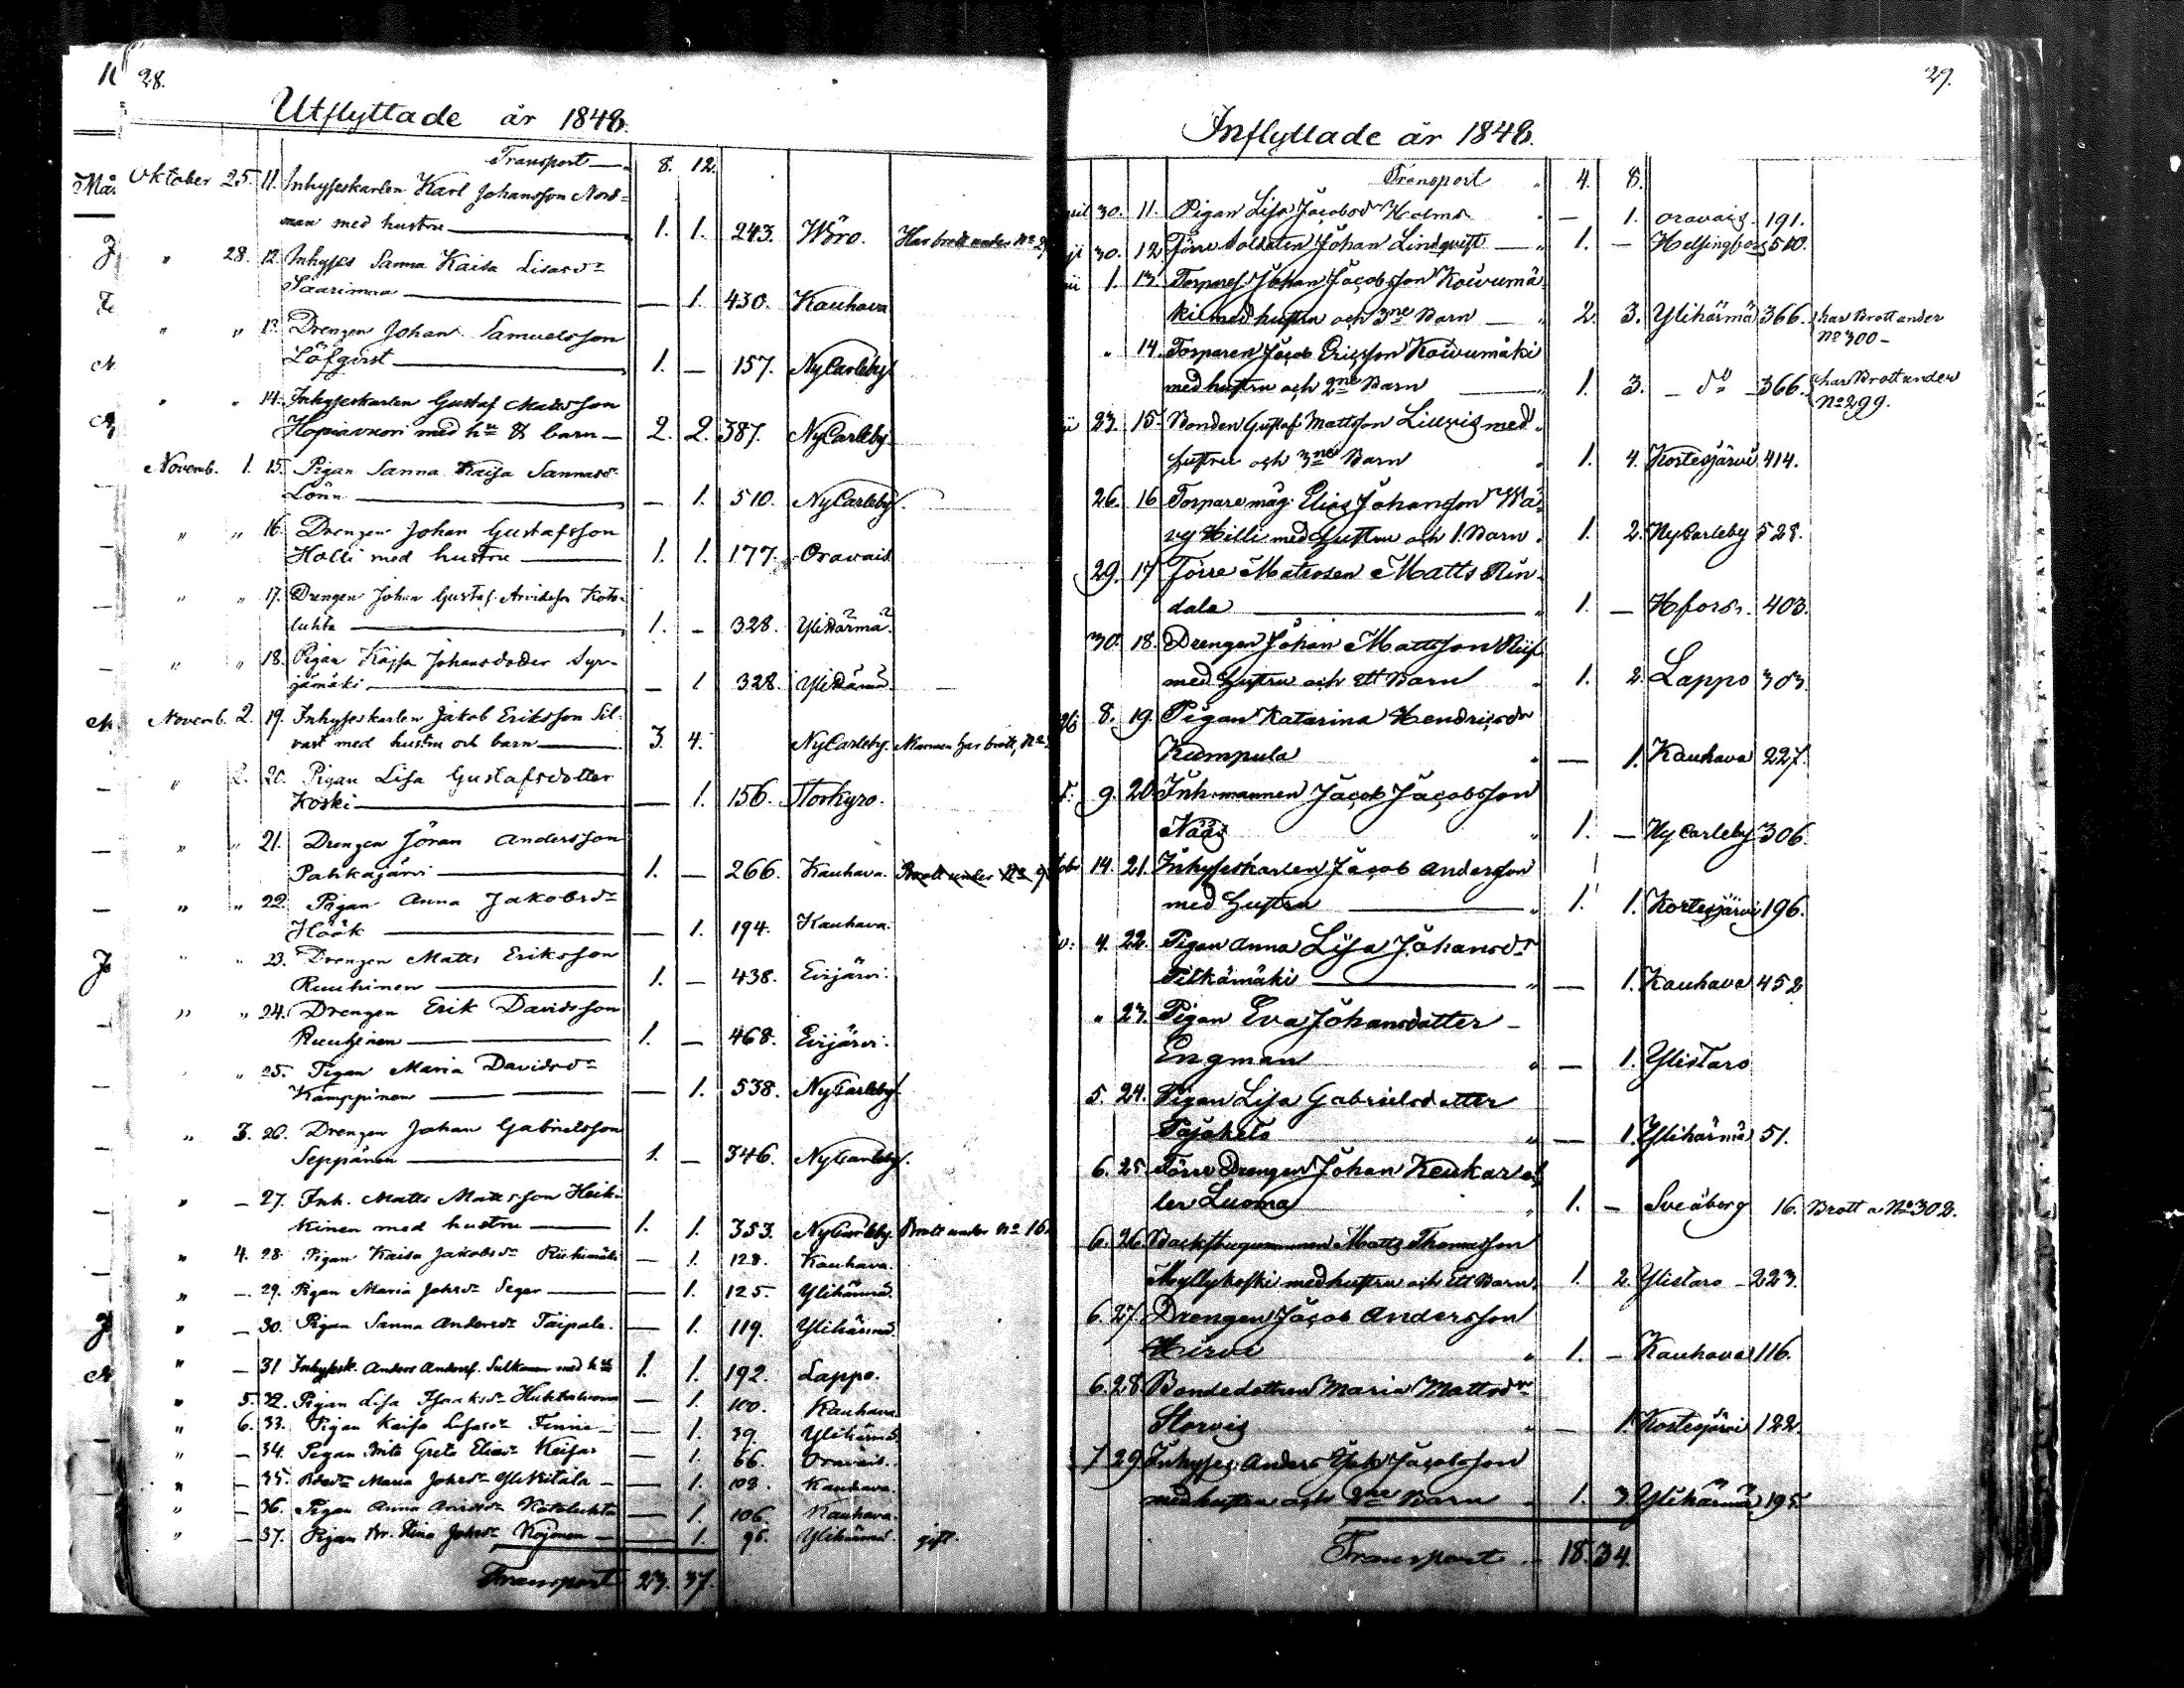 28.
Utflyttade år 1848.
Transport 8. 12.
Oktober 25. 11. Inhyseskarlen Karl Johansson Nord=
man med hustru 1. 1. 243. Wöro. Har brott under No
" 28. 12. Inhyses Sanna Kaisa Lisasdr
Saarimaa — 1. 430. Kauhava
" " 13. Drengen Johan Samuelsson
Löfqvist 1. — 157. NyCarleby
" " 14. Inhyseskarlen Gustaf Matsson
med hu & barn 2. 2. 387. NyCarleby
Novemb. 1. 15. Pigan Sanna Kaisa Sannasdr
Lönn — 1. 510. NyCarleby.
" " 16. Drengen Johan Gustafsson
Holli med hustru 1. 1. 177. Oravais
" " 17. Drengen Johan Gustaf Arvidsson Koto-
luhta 1. - 328. Ylihärmä.
" " 18. Pigan Kajsa Johansdotter Syr-
jämäki — 1 328. Ylihärmä.
Novemb. 2. 19. Inhyseskarlen Jakob Eriksson Sil-
vast med hustru och barn 3. 4. NyCarleby. Mannen har brott, No
" 2. 20. Pigan Lisa Gustafsdotter
Koski — 1. 156. Storkyro.
" " 21. Drengen Jöran Andersson
Pahkajärvi 1. — 266. Kauhava. Brott under No 9
" " 22. Pigan Anna Jakobsdr
Höök — 1. 194. Kauhava.
" " 23. Drengen Matts Eriksson
Ruuhinen 1. — 438. Evijärvi.
" " 24. Drengen Erik Davidsson
Ruuhinen 1. — 468. Evijärvi.
" 25. Pigan Maria Davidsdr
Kamppinen — 1. 538. NyCarleby.
" 3. 26. Drengen Johan Gabrielsson
Seppänen 1. — 346. NyCarleby.
" — 27. Inh. Matts Matsson Heik-
kinen med hustru 1. 1. 353. NyCarleby. Brott under No 16.
" 4. 28. Pigan Kaisa Jakobsdr Riihimäki — 1. 128. Kauhava.
" — 29. Pigan Maria Johsdr Seger — 1. 125. Ylihärmä.
" — 30. Pigan Sanna Andersdr Taipale. — 1. 119. Ylihärmä.
" — 31 Inhysesk. Anders Andersf. med hu 1. 1. 192. Lappo.
" 5. 32. Pigan Lisa Isaaksdr — 1. 100. Kauhava
" 6. 33. Pigan Kaisa — 1. 39. Ylihärmä
" — 34. Pigan Brita Greta Eliasdr Keisas — 1. 66. Oravais.
" — 35. Maria Johsdr Ylikitala — 1. 108. Kauhava.
" — 36. Pigan Anna Arvidsdr Kotoluhta — 1. 106. Kauhava.
" — 37. Pigan Br. Stina Johsdr Kojonen — 1. 96. Ylihärmä. gift.
Transport 23. 37.
29.
Inflyttade år 1848.
Transport " 4. 8.
30. 11. Pigan Lisa Jacobsdr Holms " — 1. Oravais. 191.
30. 12. Förre Soldaten Johan Lindqvist — " 1. — Helsingfors 510.
1. 13. Torparef. Johan Jacobsson Koivumä-
ki med hustru och 3ne Barn — " 2. 3. Ylihärmä 366. har Brott under
No 300-
" 14. Torparen Jacob Ericsson Koivumäki
med hustru och 2ne Barn 1. 3. — do — 366. har Brott under
No 299.
23. 15. Bonden Gustaf Mattsson Liuvis med
hustru och 3ne Barn " 1. 4. Kortesjärvi 414.
26. 16 Torparemåg Elias Johansson
med Hustru och 1. Barn. 1. 2. NyCarleby 528.
29. 17 Förre Matrosen Matts Rin-
dala " 1. — Hfors. 403.
30. 18. Drengen Johan Mattsson
med Hustru och ett Barn " 1. 2. Lappo 303.
8. 19. Pigan Katarina Hendricsdr
Kumpula " — 1. Kauhava 227.
9. 20. Inh.mannen Jacob Jacobsson
Nääs " 1. — NyCarleby 306.
14. 21. Inhyseskarlen Jacob Andersson
med Hustru " 1. 1. Kortesjärvi 196.
4. 22. Pigan Anna Lisa Johansdr
Pitkämäki " — 1. Kauhava 452
" 23. Pigan Eva Johansdotter —
Engman " — 1. Ylistaro
5. 24. Pigan Lisa Gabrielsdotter
" — 1. Ylihärmä 51.
6. 25. Förre Drengen Johan Keukar el-
ler Luoma " 1. — Sveaborg 16. Brott a No 302.
6. 26. Backstugumannen Matts Thomasson
Myllykoski med hustru och ett Barn. 1. 2. Ylistaro — 223.
6. 27. Drengen Jacob Andersson
Hirvi " 1. — Kauhava 116.
6. 28. Bondedottren Maria Mattsdr
Storvis " — 1. Kortesjärvi 122.
7 29. Inhyses Anders Jacobsson
med hustru och 2ne Barn " 1. 3. Ylihärmä 195
Transport " 18. 34.